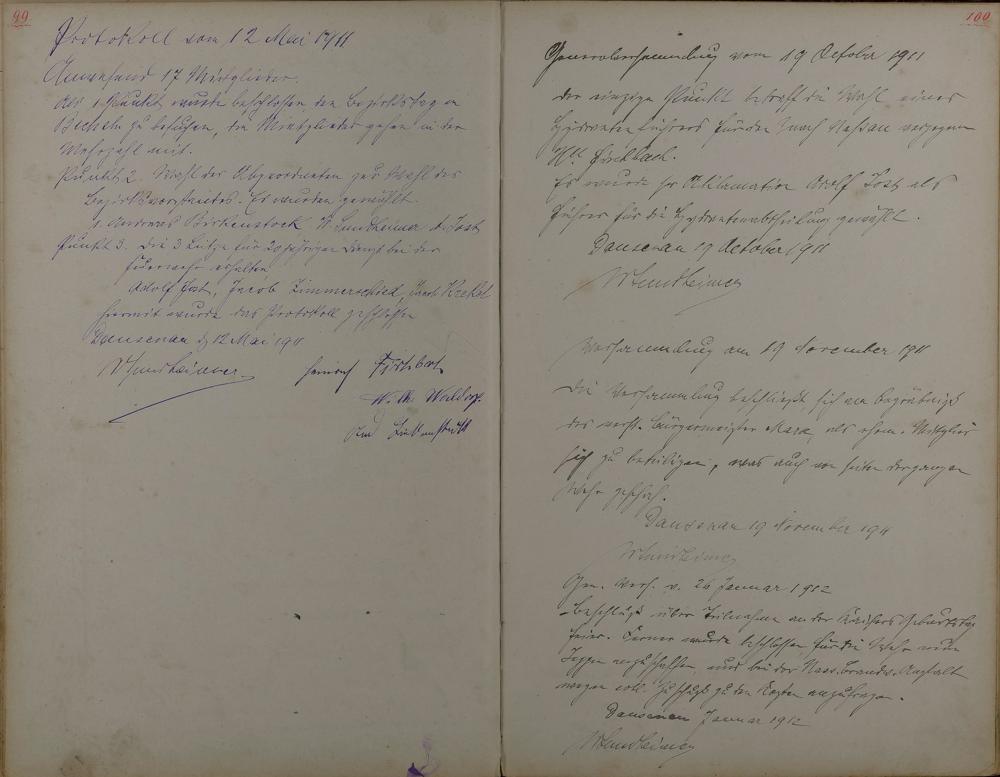 99
Protokoll vom 12 Mai 1911
Anwesend 17 Mitglieder.
Als 1. Punkt wurde beschlossen den Bezirkstag in
zu besuchen, die Mitglieder gehen in der
Mehrzahl mit.
Punkt 2. Wahl der Abgeordneten zur Wahl des
Bezirksvorstandes. Es wurden gewählt
1. Andreas Birkenstock W. Lundheimer A. Jost
Punkt 3. Die 3 Litze für 20 jährigen Dienst bei der
Feuerwehr erhalten
Adolf Jost, Jacob Zimmerschied, Krekel
hiermit wurde das Protokoll geschlossen
Dausenau d 12 Mai 1911
Heinrich
100
Generalversammlung vom 19 October 1911
der einzige Punkt betraff die Wahl eines
Hydrantenführers für den nach Nassau verzogenen
Es wurde per Aklamation Adolf Jost als
Führer für die Hydrantenabtheilung gewählt.
Dausenau 19 October 1911
Versammlung am 19 November 1911
Die Versammlung beschließt sich am Begräbniß
des verst. Bürgermeister als ehem. Mitglied
sich zu beteiligen, was auch von seiten der ganzen
Wehr geschah.
Dausenau 19 November 1911
Gen. Vers. v. 26 Januar 1912
Beschluß über Teilnahme an der Kaisers Geburtstag
feier. Ferner wurde beschlossen für die Wehr neue
Joppen anzuschaffen, und bei der Nass. Brandv. Anstalt
wegen evtl. Zuschuß zu den Kosten anzufragen.
Dausenau Januar 1912